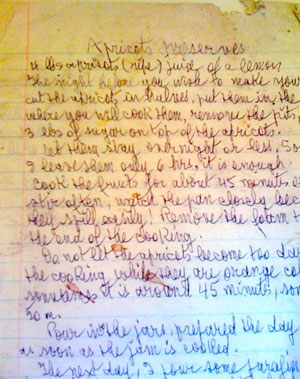 Apricots preserves
4 lbs apricots (ripe) juice of a lemon
The night before you wish to make your
cut the apricots in halves, put them in the
where you will cook them, remove the pits,
3 lbs of sugar on top of the apricots.
Let them stay overnight or less, So
I leave them only 6 hrs. it is enough.
Cook the fruits for about 45 minutes
stir often, watch the pan closely bec
they spill easily! Remove the foam t
the end of the cooking.
Do not let the apricots become too da
the cooking while they are orange co
sometimes it is around 45 minutes, som
50 m.
Pour in the jars, prepared the day
as soon as the jam is cooled.
The next day, I pour some